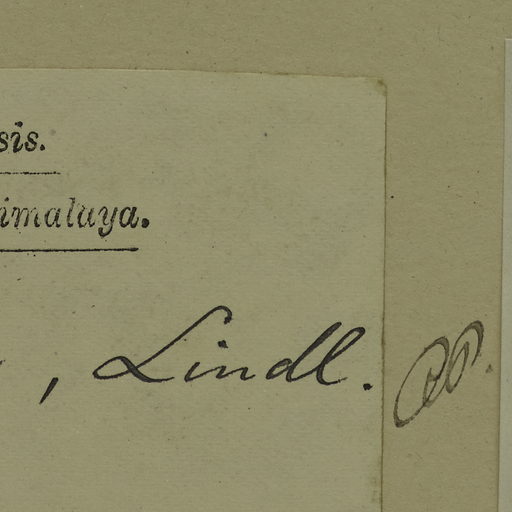 sis.
imalaya.
, Lindl.